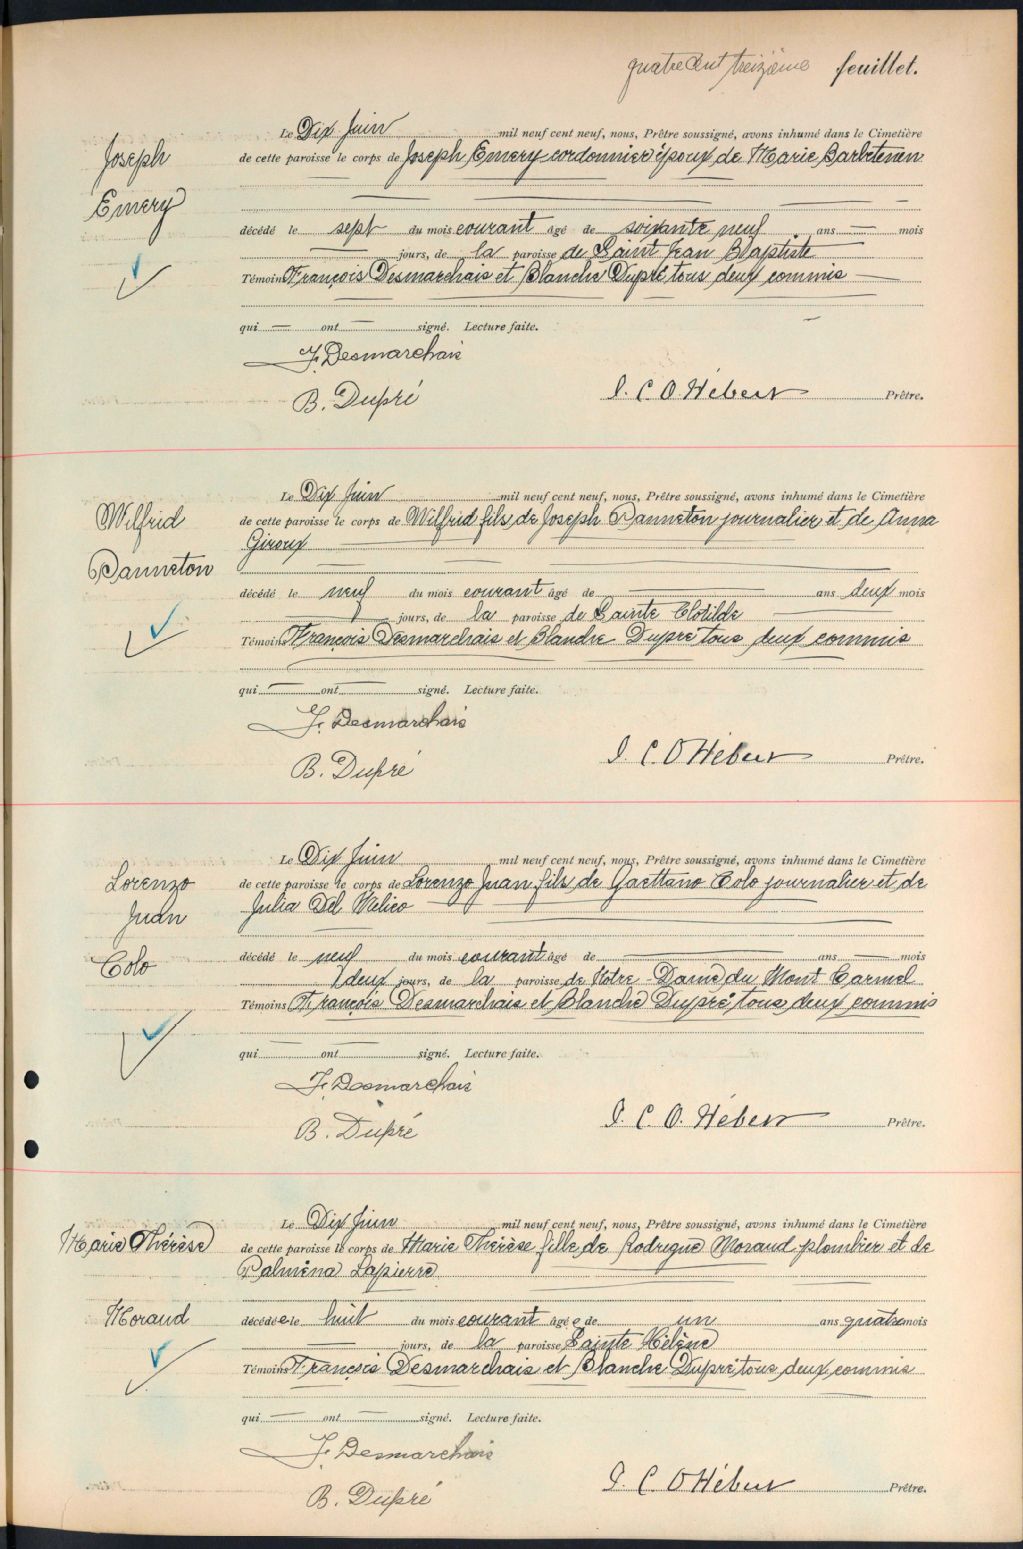 quatre cent treizième feuillet.
Joseph
Emery
Le Dix Juin mil neuf cent neuf, nous, Prêtre soussigné, avons inhumé dans le Cimetière
de cette paroisse le corps de Joseph Emery cordonnier époux de Marie
décédé le sept du mois courant âgé de soixante neuf ans — mois
— jours, de la paroisse de Saint Jean Baptiste
Témoins François Desmarchais et Blanche Dupré tous deux commis
qui — ont — signé. Lecture faite.
F. Desmarchais
B. Dupré
J. C. O. Hébert Prêtre.
Wilfrid
Panneton
Le Dix Juin mil neuf cent neuf, nous, Prêtre soussigné, avons inhumé dans le Cimetière
de cette paroisse le corps de Wilfrid fils de Joseph Panneton journalier et de Anna
Giroux
décédé le neuf du mois courant âgé de — ans deux mois
— jours, de la paroisse de Sainte Clotilde
Témoins François Desmarchais et Blanche Dupré tous deux commis
qui — ont — signé. Lecture faite.
F. Desmarchais
B. Dupré
J. C. O Hébert Prêtre.
Lorenzo
Juan
Colo
Le Dix Juin mil neuf cent neuf, nous, Prêtre soussigné, avons inhumé dans le Cimetière
de cette paroisse le corps de Lorenzo Juan fils de Gaettano Colo journalier et de
Julia Del
décédé le neuf du mois courant âgé de — ans — mois
deux jours, de la paroisse de Notre Dame du Mont Carmel
Témoins François Desmarchais et Blanche Dupré tous deux commis
qui — ont — signé. Lecture faite.
F. Desmarchais
B. Dupré
J. C. O. Hébert Prêtre.
Marie Thérèse
Moraud
Le Dix Juin mil neuf cent neuf, nous, Prêtre soussigné, avons inhumé dans le Cimetière
de cette paroisse le corps de Marie Thérèse fille de Rodrigue Moraud plombier et de
Palména Lapierre
décédée le huit du mois courant âgée de un ans quatre mois
— jours, de la paroisse Sainte Hélène
Témoins François Desmarchais et Blanche Dupré tous deux commis
qui — ont — signé. Lecture faite.
F. Desmarchais
B. Dupré
J. C. O Hébert Prêtre.